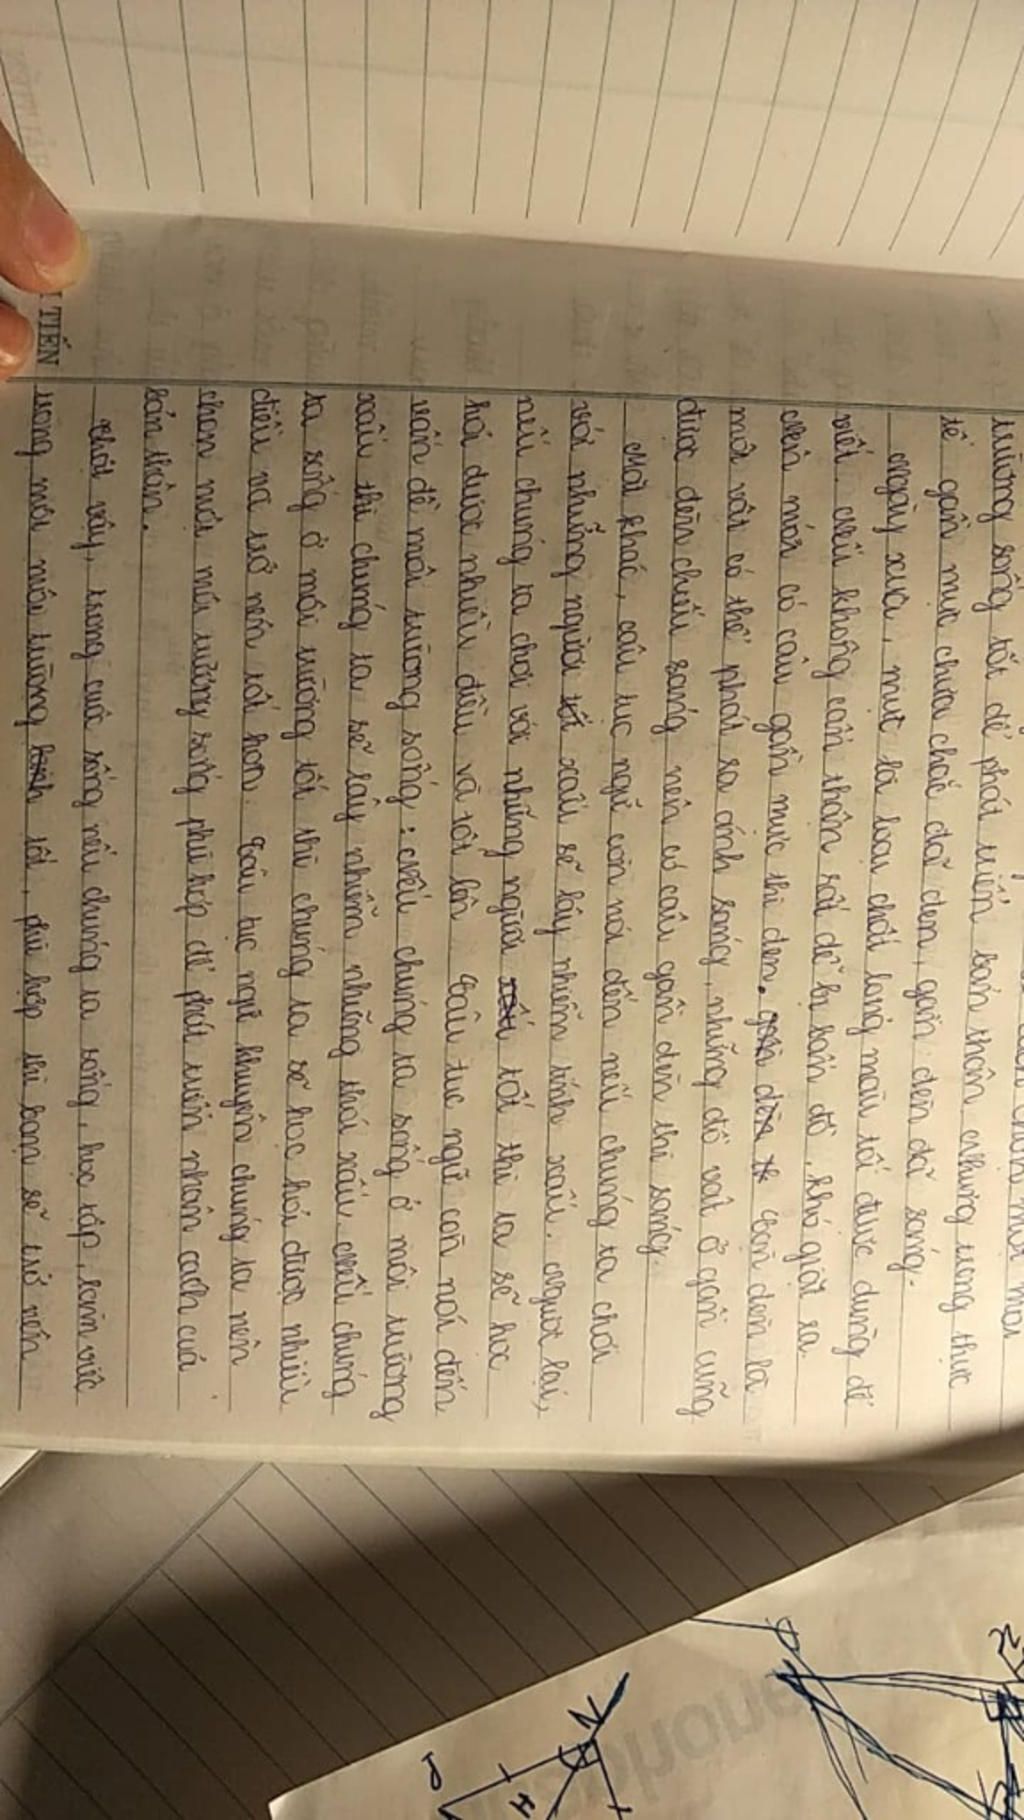 trường sống tốt để phát triển bản thân. Nhưng trong thực
tế gần mực chưa chắc đã đen, gần đèn đã sáng.
Ngày xưa, mực là loại chất lỏng màu tối được dùng để
viết. Nếu không cẩn thận rất dễ bị bẩn đồ, khó giặt ra.
Nên mới có câu gần mực thì đen. Còn đèn là
một vật có thể phát ra ánh sáng, những đồ vật ở gần cũng
được đèn chiếu sáng nên có câu gần đèn thì sáng.
Mặt khác, câu tục ngữ còn nói đến nếu chúng ta chơi
với những người xấu sẽ lây nhiễm tính xấu. Ngược lại,
nếu chúng ta chơi với những người tốt thì ta sẽ học
hỏi được nhiều điều và tốt lên. Câu tục ngữ còn nói đến
vấn đề môi trường sống: Nếu chúng ta sống ở môi trường
xấu thì chúng ta sẽ lây nhiễm những thói xấu. Nếu chúng
ta sống ở môi trường tốt thì chúng ta sẽ học hỏi được nhiều
điều và trở nên tốt hơn. Câu tục ngữ khuyên chúng ta nên
chọn một môi trường sống phù hợp để phát triển nhân cách của
bản thân.
Thật vậy, trong cuộc sống nếu chúng ta sống, học tập, làm việc
trong một môi trường tốt, phù hợp thì bạn sẽ trở nên
TIẾN
H